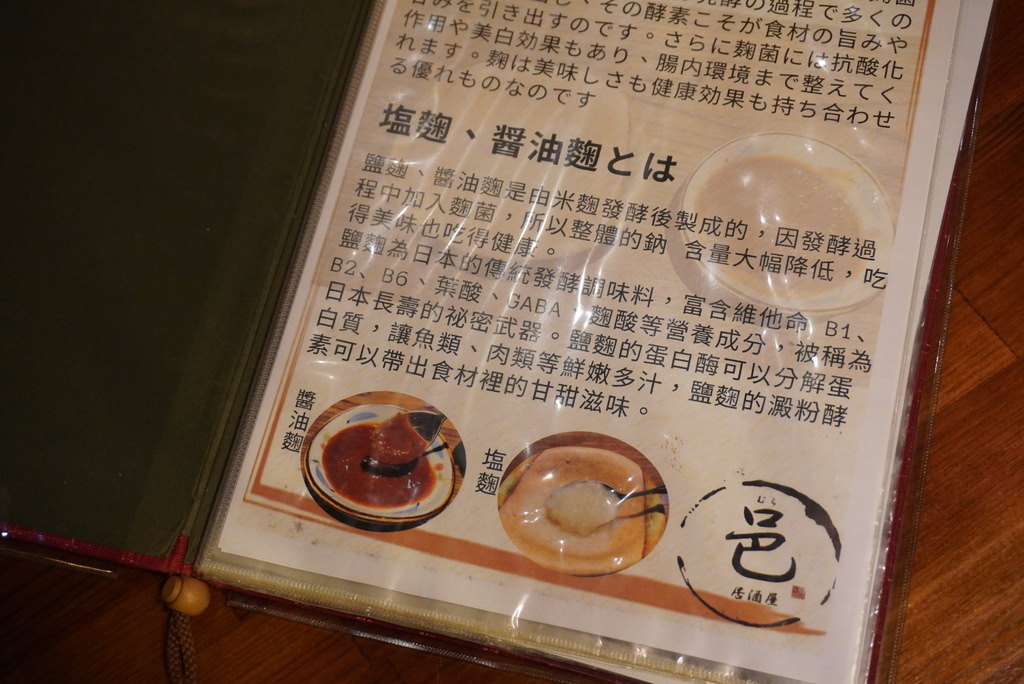 酵の過程で多くの
し、その酵素こそが食材の旨みや
甘みを引き出すのです。さらに麹菌には抗酸化
作用や美白効果もあり、腸内環境まで整えてく
れます。麹は美味しさも健康効果も持ち合わせ
る優れものなのです
塩麴、醤油麴とは
鹽麴、醬油麴是由米麴發酵後製成的，因發酵過
程中加入麴菌，所以整體的鈉 含量大幅降低，吃
得美味也吃得健康。
鹽麴為日本的傳統發酵調味料，富含維他命 B1、
B2、B6、葉酸、GABA、麴酸等營養成分，被稱為
日本長壽的祕密武器。鹽麴的蛋白酶可以分解蛋
白質，讓魚類、肉類等鮮嫩多汁，鹽麴的澱粉酵
素可以帶出食材裡的甘甜滋味。
醬油麴
塩麴
むら
邑
居酒屋